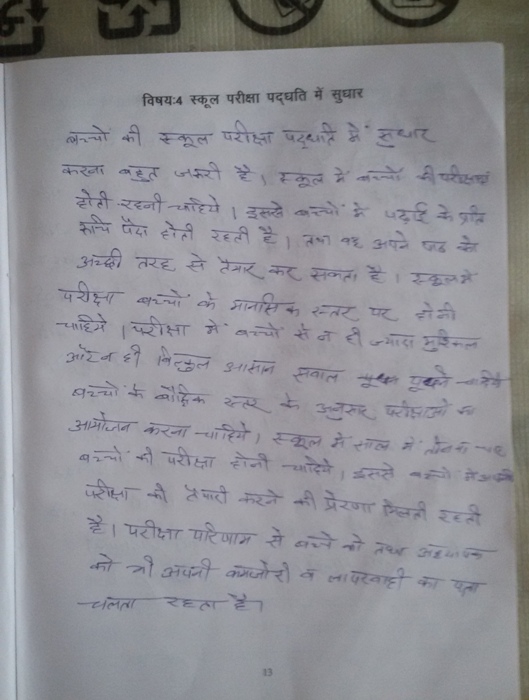 विषय:4 स्कूल परीक्षा पद्धति में सुधार
बच्चों की स्कूल परीक्षा पद्धति में सुधार
करना बहुत जरूरी है। स्कूल में बच्चों की परीक्षाएं
होती रहनी चाहिये। इससे बच्चों में पढ़ाई के प्रति
रूचि पैदा होती रहती है। तथा वह अपने पाठ को
अच्छी तरह से तैयार कर सकता है। स्कूल में
परीक्षा बच्चों के मानसिक स्तर पर होनी
चाहिये। परीक्षा में बच्चों से न ही ज्यादा मुश्किल
और न ही बिल्कुल आसान सवाल पूछने चाहिये
बच्चों के बौद्धिक स्तर के अनुसार परीक्षाओं का
आयोजन करना चाहिये। स्कूल में साल में तीन
बच्चों की परीक्षा होनी चाहिये। इससे बच्चों में
परीक्षा की तैयारी करने की प्रेरणा मिलती रहती
है। परीक्षा परिणाम से बच्चे को तथा अध्यापक
को भी अपनी कमजोरी व लापरवाही का पता
चलता रहता है।
13